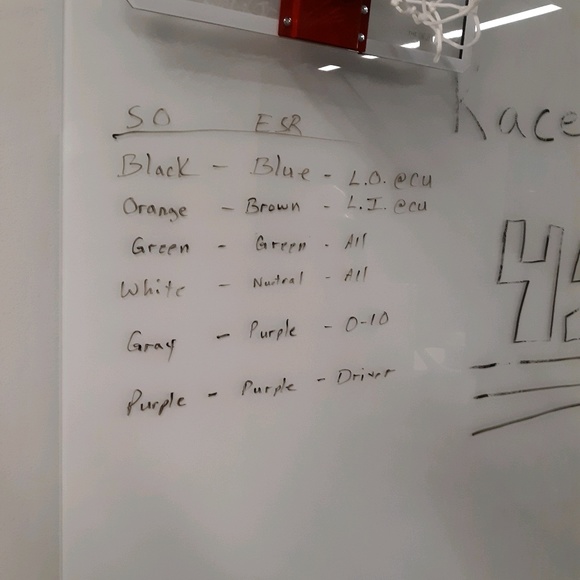 SO ESR
Black - Blue - L.O. @CU
Orange - Brown - L.I. @CU
Green - Green - All
White - Nuetral - All
Gray - Purple - 0-10
Purple - Purple - Driver
Kace
45